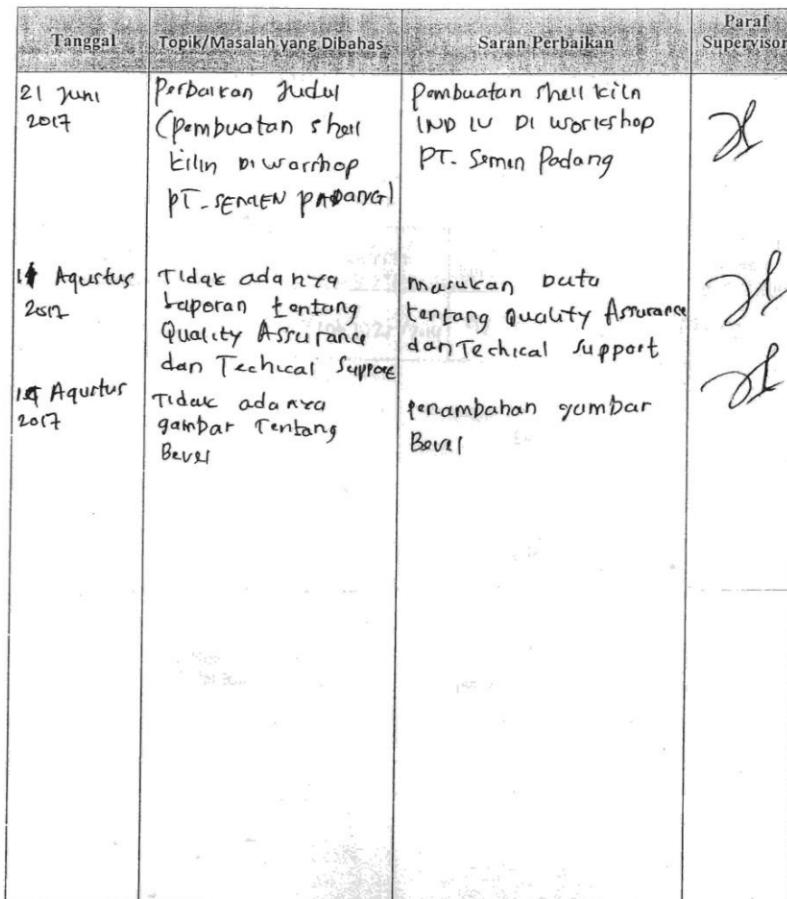 Tanggal
Topik/Masalah yang Dibahas
Saran Perbaikan
Paraf
Supervisor
21 Juni
2017
Perbaikan Judul
(pembuatan shell
kilin Di worshop
PT. SEMEN PADANG)
Pembuatan shell kiln
IND IV DI workshop
PT. Semen Padang
Agustus
2017
Tidak adanya
Laporan tentang
Quality Assurance
dan Techical Support
masukan Data
tentang Quality Assurance
dan Techical Support
Agustus
2017
Tidak adanya
gambar Tentang
Bevel
penambahan gambar
Bevel